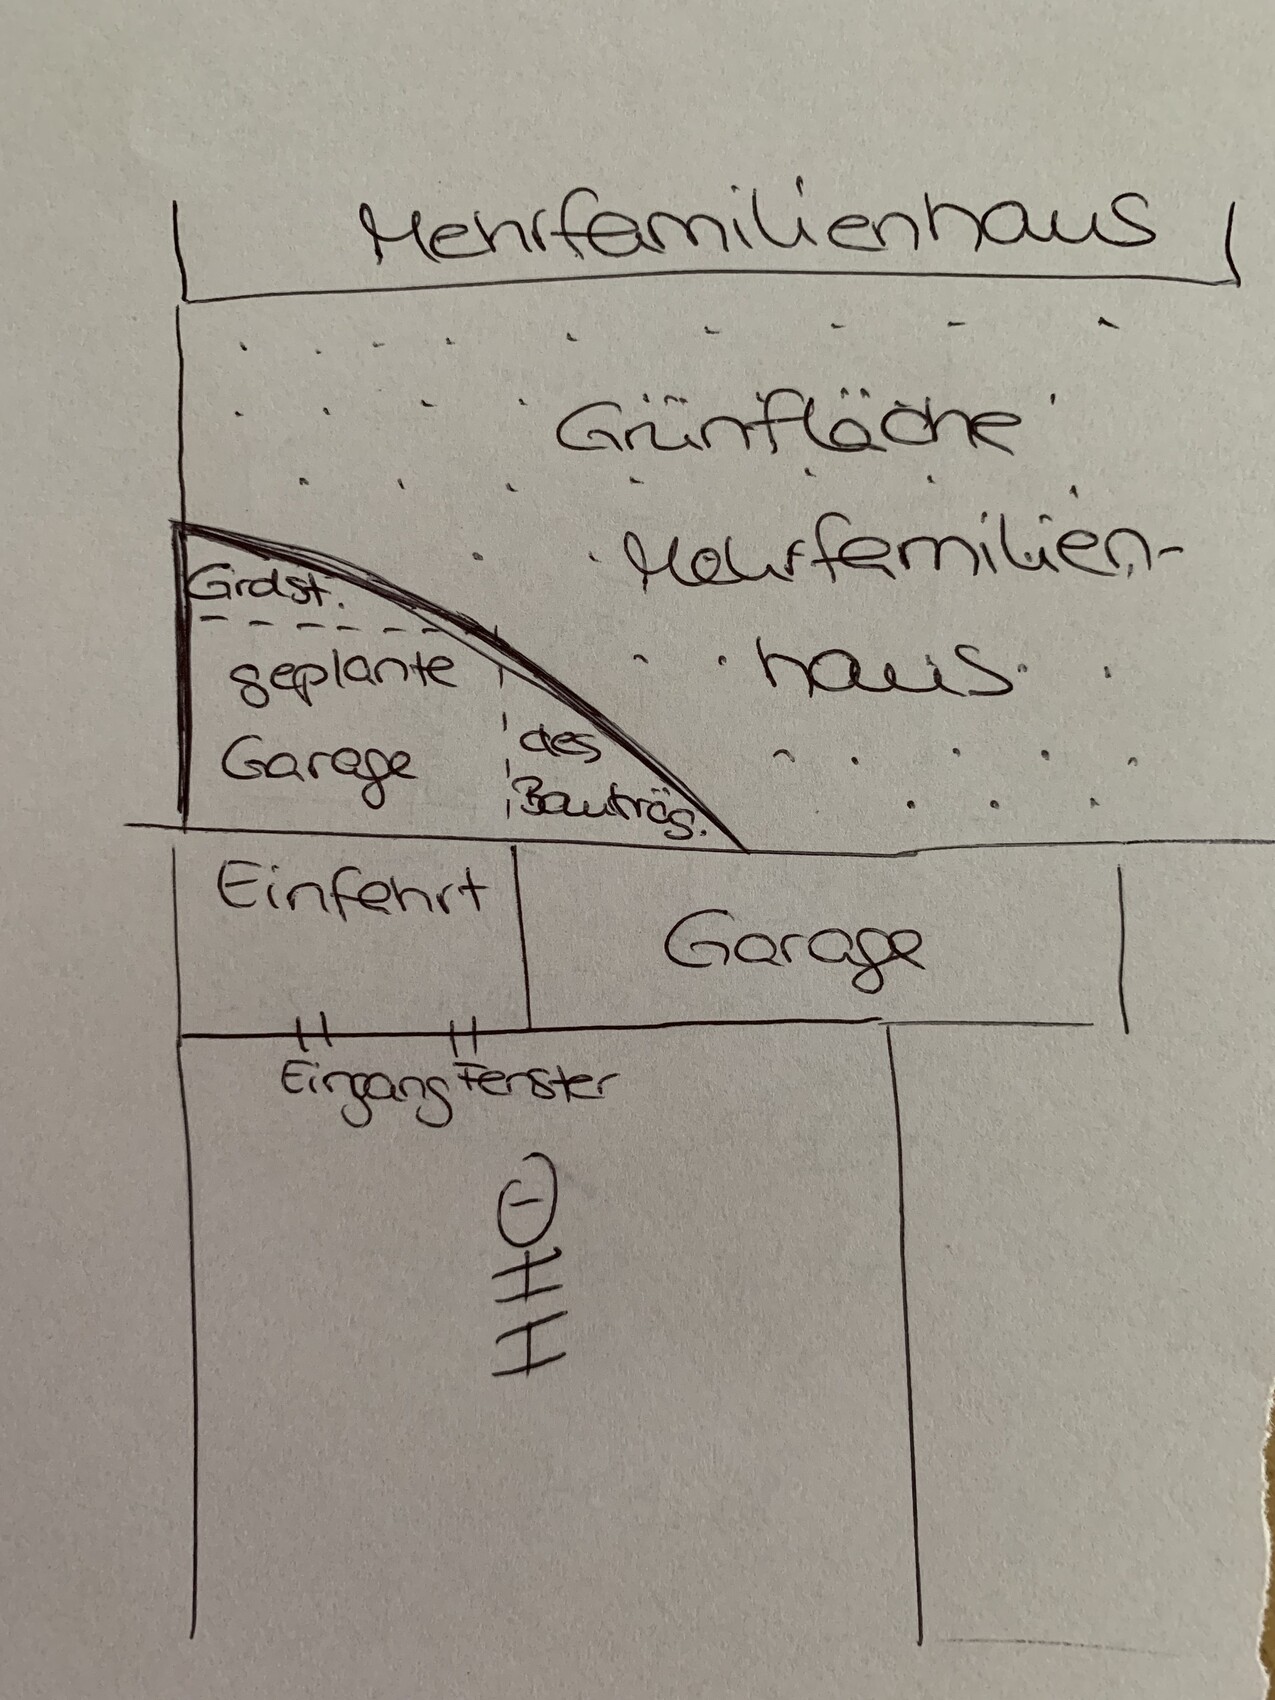 Mehrfamilienhaus
Grünfläche
Mehrfamilien-
haus
Grdst.
geplante
Garage
des
Bauträg.
Einfahrt
Garage
Eingang Fenster